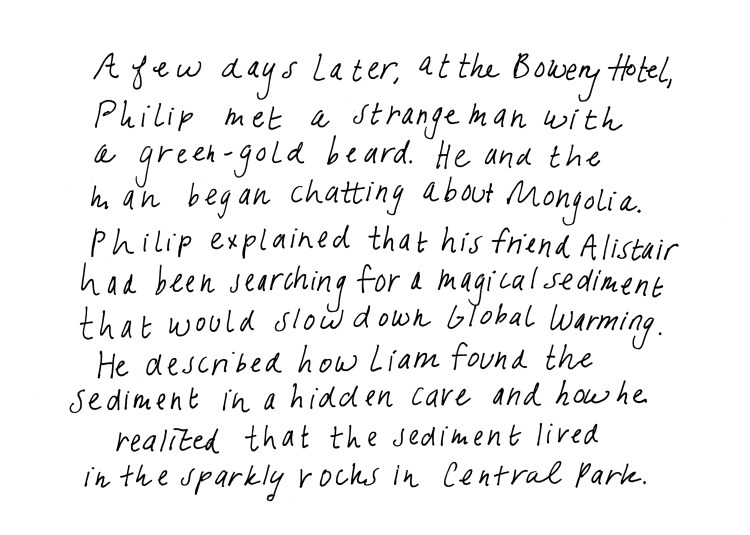 A few days later, at the Bowery Hotel,
Philip met a strange man with
a green-gold beard. He and the
man began chatting about Mongolia.
Philip explained that his friend Alistair
had been searching for a magical sediment
that would slow down Global Warming.
He described how Liam found the
sediment in a hidden cave and how he
realized that the sediment lived
in the sparkly rocks in Central Park.